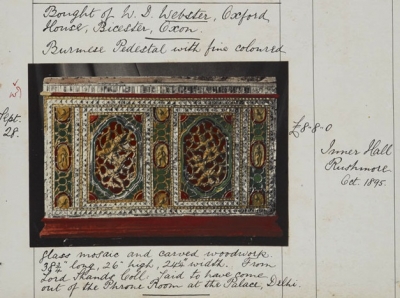 Bought of W. D. Webster, Oxford
House, Bicester, Oxon.
Burmese Pedestal with fine coloured
Sept.
28.
£8-8-0
Inner Hall
Rushmore
Oct. 1895.
glass mosaic and carved woodwork.
38¼" long, 26" high, 24½" width. From
Lord Thands Coll. Said to have come
out of the Phrone Room at the Palace, Delhi.